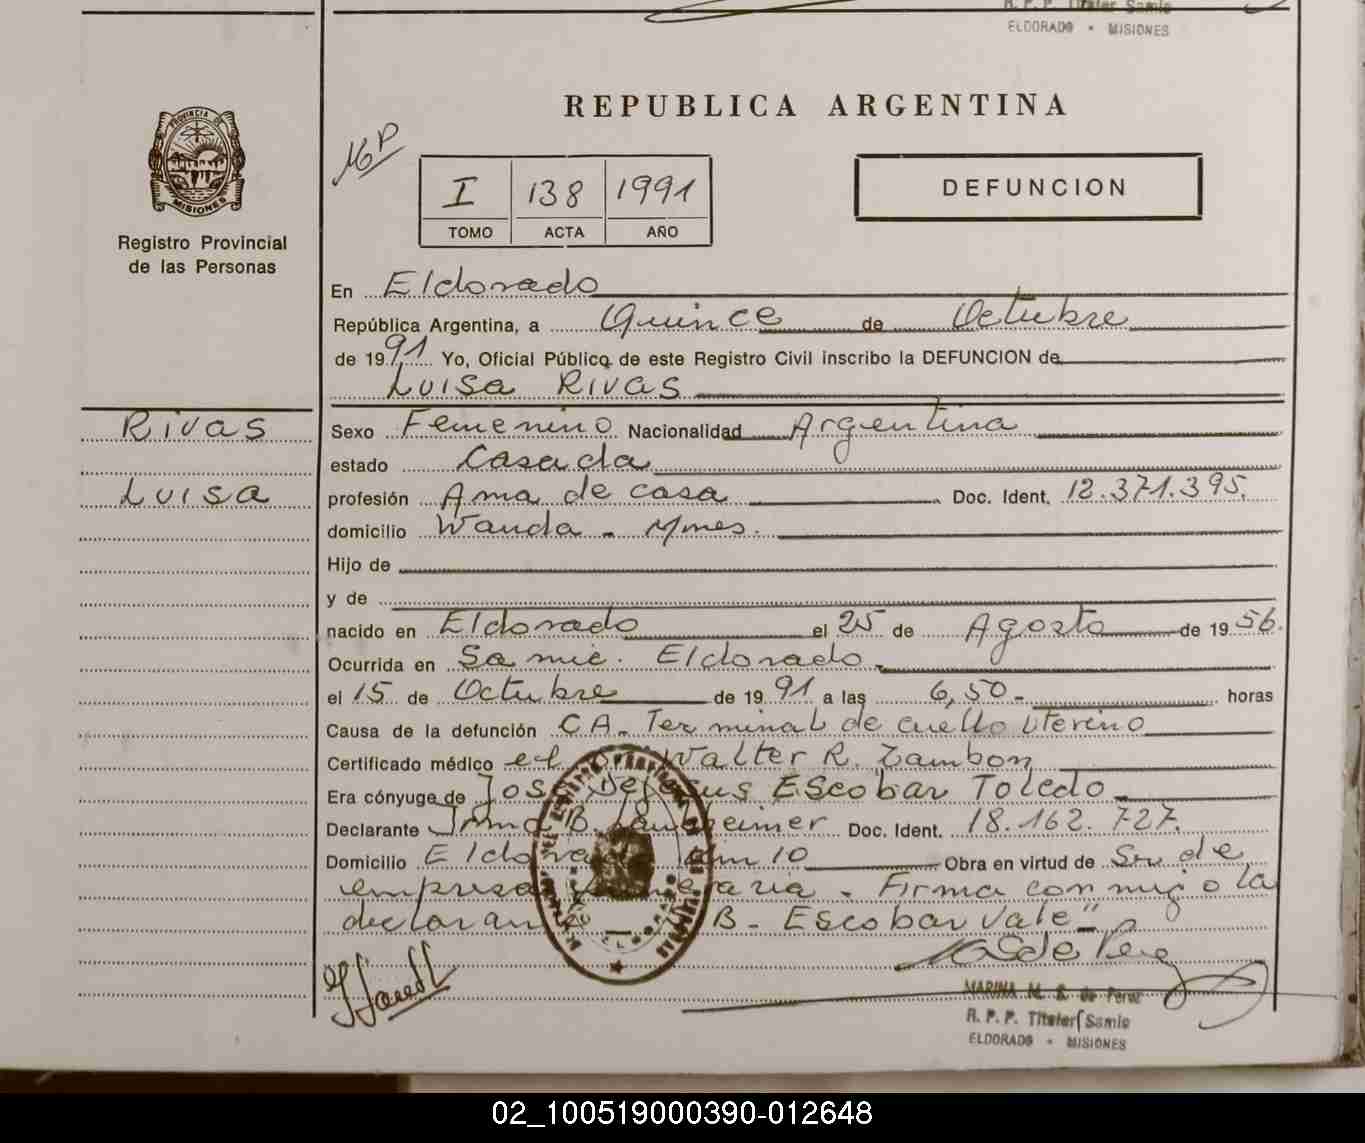 R. P. P. Titular Samic
ELDORADO - MISIONES
REPUBLICA ARGENTINA
PROVINCIA DE
MISIONES
Registro Provincial
de las Personas
I 138 1991
TOMO ACTA AÑO
DEFUNCION
En Eldorado
República Argentina, a Quince de Octubre
de 1991 Yo, Oficial Público de este Registro Civil inscribo la DEFUNCION de
Luisa Rivas
Rivas
Luisa
Sexo Femenino Nacionalidad Argentina
estado Casada
profesión Ama de casa Doc. Ident. 12.371.395.
domicilio Wanda - Mnes.
Hijo de
y de
nacido en Eldorado el 25 de Agosto de 1956.
Ocurrida en Samic. Eldorado
el 15 de Octubre de 1991 a las 6,50 - horas
Causa de la defunción CA. Terminal de cuello Uterino
Certificado médico el Walter R. Zambon
Era cónyuge de Jose De Jesus Escobar Toledo
Declarante Irma B. Doc. Ident. 18.162.727.
Domicilio Eldorado Km 10 Obra en virtud de Sn de
empresa funeraria - Firma conmigo la
declarante B - Escobar Vale"
MARINA M. S. de Perez
R. P. P. Titular Samic
ELDORADO - MISIONES
02_100519000390-012648